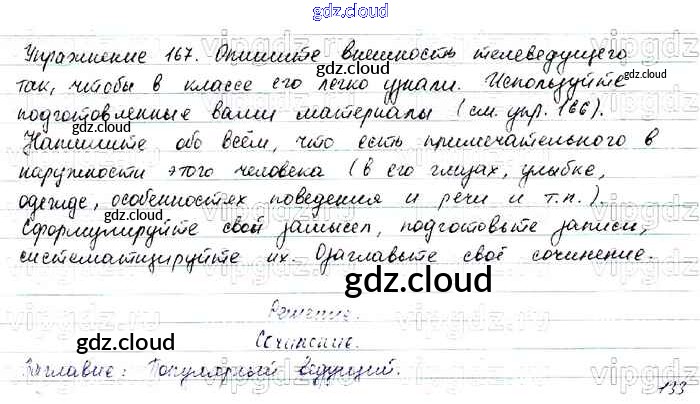 gdz.cloud
Упражнение 167. Опишите внешность телеведущего
так, чтобы в классе его легко узнали. Используйте
подготовленные вами материалы (см. упр. 166).
Напишите обо всём, что есть примечательного в
наружности этого человека (в его глазах, улыбке,
одежде, особенностях поведения и речи и т.п.).
Сформулируйте свой замысел, подготовьте записи,
систематизируйте их. Озаглавьте своё сочинение.
gdz.cloud
Решение.
Сочинение.
Заглавие: Популярный ведущий.
133